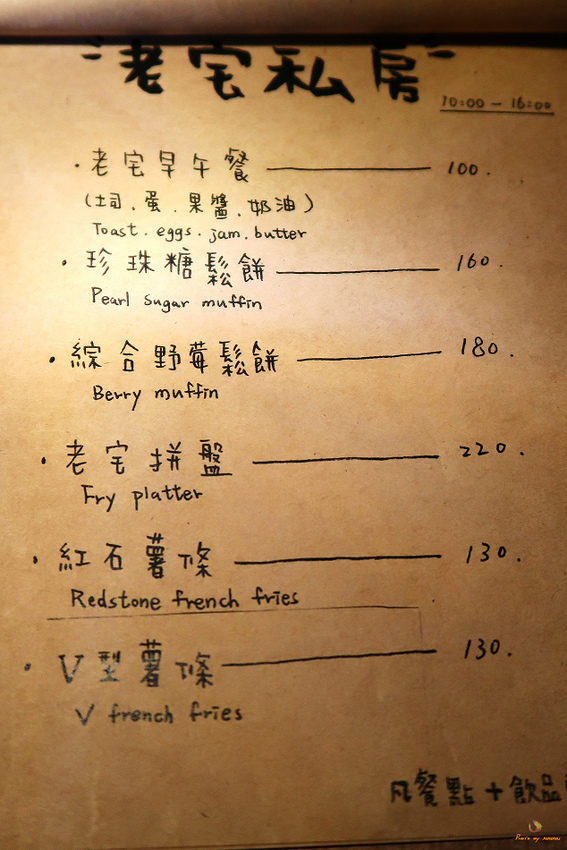 "老宅私房"
10:00 - 16:00
· 老宅早午餐 100.
(土司、蛋、果醬、奶油)
Toast. eggs. jam. butter
· 珍珠糖鬆餅 160.
Pearl sugar muffin
· 綜合野莓鬆餅 180.
Berry muffin
· 老宅拼盤 220.
Fry platter
· 紅石薯條 130.
Redstone french fries
· V型薯條 130.
V french fries
凡餐點+飲品